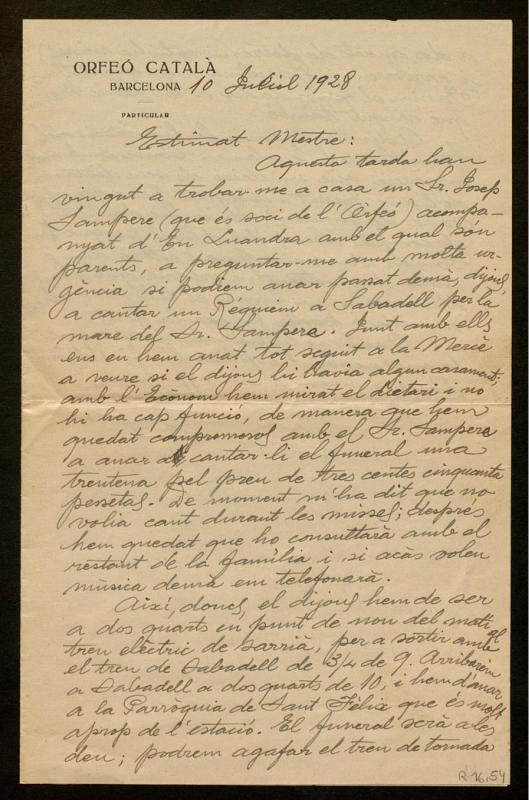 ORFEÓ CATALÀ
BARCELONA 10 Juliol 1928
PARTICULAR
Estimat Mestre:
Aquesta tarda han
vingut a trobar-me a casa un Sr. Josep
Sampere (que és soci de l'Orfeó) acompa-
nyat d'En Luandra amb el qual són
parents, a preguntar-me amb molta ur-
gència si podrem anar passat demà, dijous,
a cantar un Rèquiem a Sabadell per la
mare del Sr. Sampere. Junt amb ells
ens en hem anat tot seguit a la Mercè
a veure si el dijous hi havia algun casament;
amb l'Ecònom hem mirat el dietari i no
hi ha cap funció, de manera que hem
quedat compromesos amb el Sr. Sampere
a anar a cantar-li el funeral una
trentena pel preu de tres centes cinquanta
pessetas. De moment m'ha dit que no
volia cant durant les misses; després
hem quedat que ho consultarà amb el
restant de la família i, si acàs volen
música demà em telefonarà.
Aixi, doncs, el dijous hem de ser
a dos quarts en punt de nou del matí al
tren elèctric de Sarrià, per a sortir amb
el tren de Sabadell de 3/4 de 9. Arribarem
a Sabadell a dos quarts de 10, i hem d'anar
a la Parròquia de Sant Fèlix que és molt
aprop de l'estació. El funeral serà a les
deu; podrem agafar el tren de tornada
R 16,54